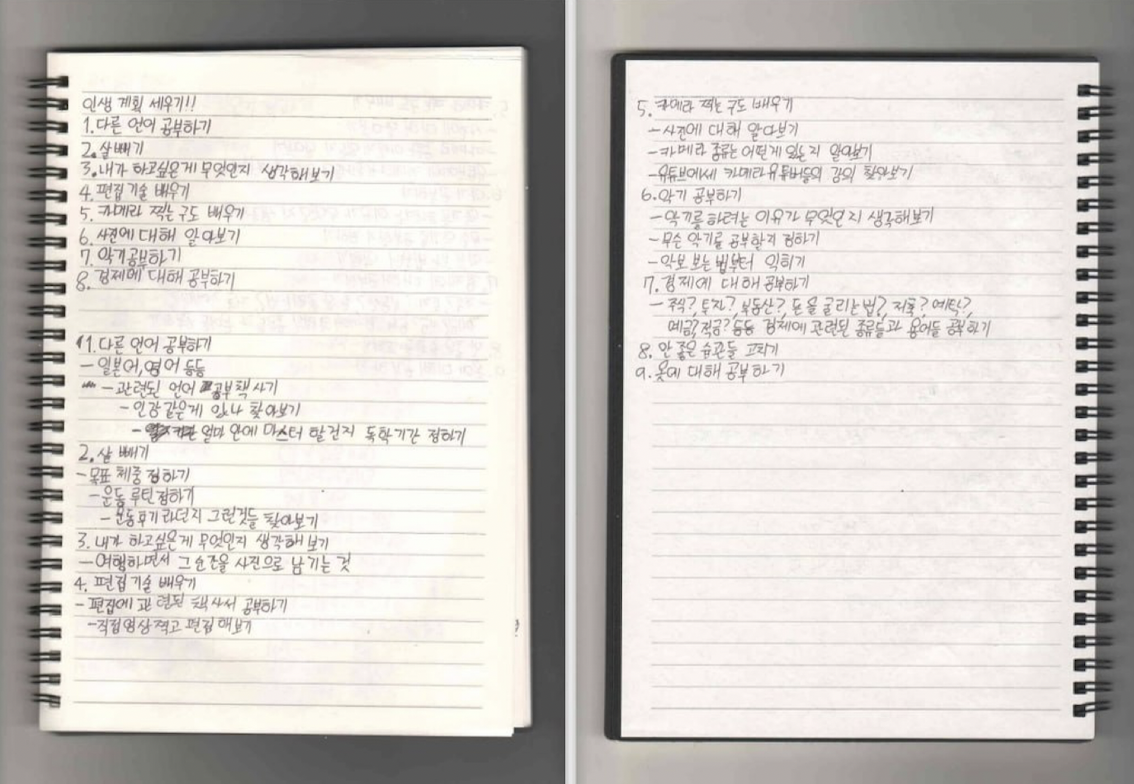 인생 계획 세우기!!
1. 다른 언어 공부하기
2. 살 빼기
3. 내가 하고싶은게 무엇인지 생각해보기
4. 편집 기술 배우기
5. 카메라 찍는 구도 배우기
6. 사진에 대해 알아보기
7. 악기 공부하기
8. 경제에 대해 공부하기
1. 다른 언어 공부하기
- 일본어, 영어 등등
- 관련된 언어 공부 책 사기
- 인강 같은게 있나 찾아보기
- 얼마 안에 마스터 할건지 독학기간 정하기
2. 살 빼기
- 목표 체중 정하기
- 운동 루틴 정하기
- 운동후기 라던지 그런것들 찾아보기
3. 내가 하고싶은게 무엇인지 생각해 보기
- 여행하면서 그 순간을 사진으로 남기는 것
4. 편집 기술 배우기
- 편집에 관련된 책 사서 공부하기
- 직접 영상 찍고 편집 해보기
5. 카메라 찍는 구도 배우기
- 사진에 대해 알아보기
- 카메라 종류는 어떤게 있는지 알아보기
- 유튜브에서 카메라 유튜버들의 강의 찾아보기
6. 악기 공부하기
- 악기를 하려는 이유가 무엇인지 생각해보기
- 무슨 악기를 공부할지 정하기
- 악보 보는 법부터 익히기
7. 경제에 대해 공부하기
- 주식?, 투자?, 부동산?, 돈을 굴리는 법?, 저축? 예탁?,
예금? 적금? 등등 경제에 관련된 종류들과 용어들 공부하기
8. 안 좋은 습관들 고치기
9. 옷에 대해 공부하기